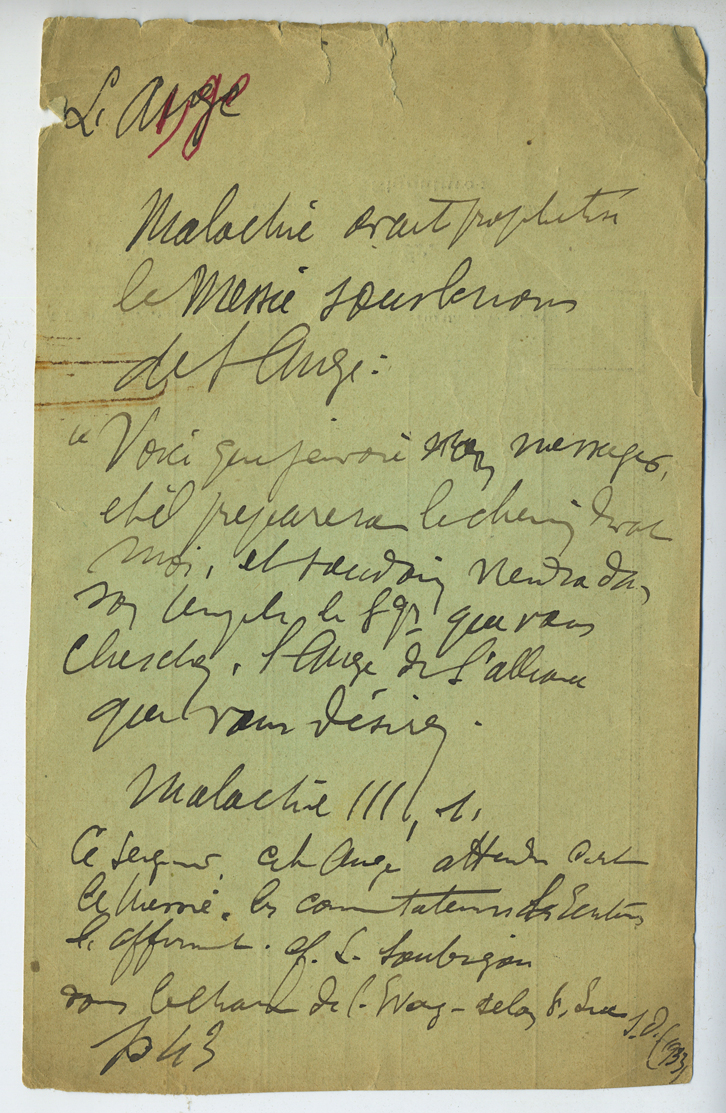 L'Ange
Malachie avait prophétisé
le Messie sous le nom
de l'Ange:
"Voici que j'envoie mon messager,
et il preparera le chemin devant
moi, et soudain viendra dans
son temple le Sgr que vous
cherchez, l'Ange de l'alliance
que vous désirez.
Malachie III, 1.
Ce Seigneur, cet Ange attendu c'est
le Messie. les commentateurs des Ecritures
l'affirment. cf. L. Soubigou
sous le charme de l'Evang-selon S. Luc
p 43